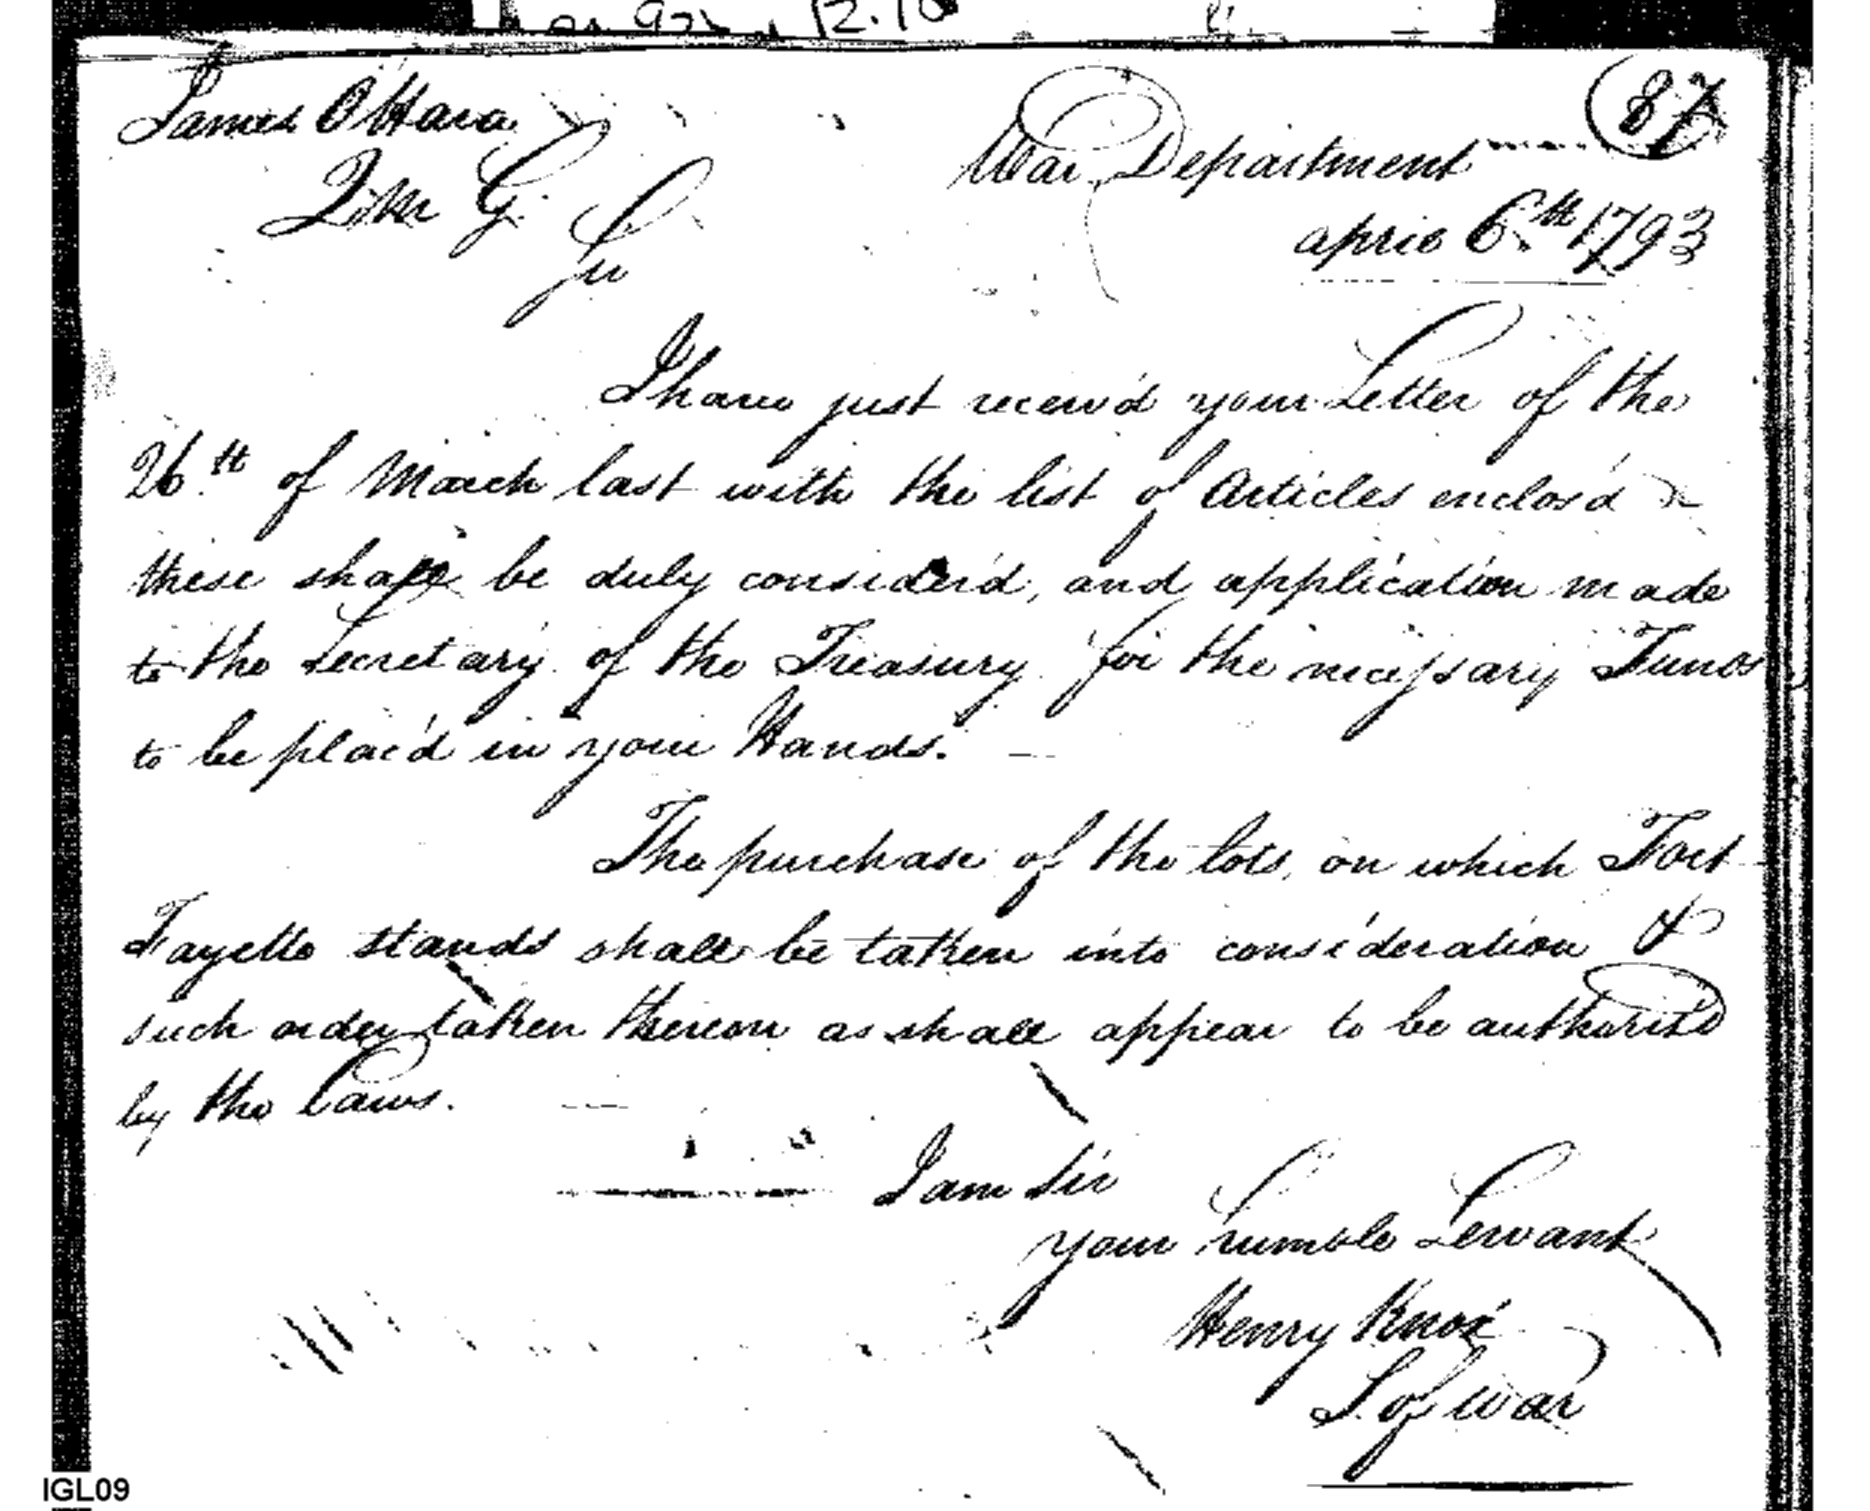 12.10
87
James OHara
War Department
QMr G.
april 6th 1793
Sir
I have just receiv'd your Letter of the
26th of March last with the list of Articles enclos'd &
these shall be duly consider'd, and application made
to the Secretary of the Treasury for the necessary Funds
to be plac'd in your Hands. —
The purchase of the lots, on which Fort
Fayette stands shall be taken into consideration &
such order taken thereon as shall appear to be authoris'd
by the Laws. —
I am Sir
your humble Servant
Henry Knox
S. of War
IGL09